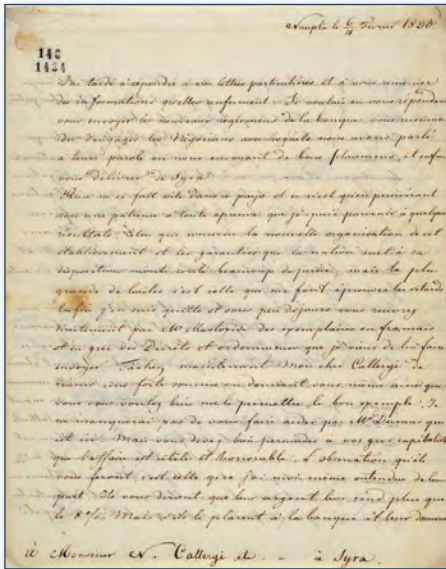 Nauplie le 6/18 Février 1830
146
1424
J'ai tardé à répondre à vos lettres particulières et à vous remercier
des informations qu'elles renferment. Je voulais en vous répondant
vous envoyer les nouveaux règlemens de la banque, vous recommander
d'engager les Négocians avec lesquels nous avons parlé
à tenir parole en nous envoyant de bons placemens, et enfin
vous délivrer de Syra
Rien ne se fait vite dans ce pays et ce n'est qu'en persévérant
avec une patience à toute épreuve que je puis parvenir à quelque
résultat. Celui qui concerne la nouvelle organisation de cet
établissement et les garanties que la nation met à sa
disposition m'ont coûté beaucoup de peine, mais la plus
grande de toutes c'est celle que me font éprouver les retards
Enfin j'en suis quitte et sous peu de jours vous recevrez
directement par Mr des exemplaires en français
et en grec des Décrets et ordonnances que je viens de lui faire
envoyer. Faites maintenant Mon cher Callergi de
réunir une forte somme en donnant vous même ainsi que
vous avez voulu bien me le promettre, le bon exemple. Je
ne manquerai pas de vous faire aider par Mr qui
est ici. Mais vous devez bien persuader à vos grecs capitalistes
que l'affaire est utile et honorable. L'observation qu'ils
vous feront, c'est celle que j'ai moi même entendue de leur
part. Ils vous diront, que leur argent leur rend plus que
le 8 %. Mais s'ils le placent à la banque il leur donnera
à Monsieur N. Callergi etc - - à Syra.